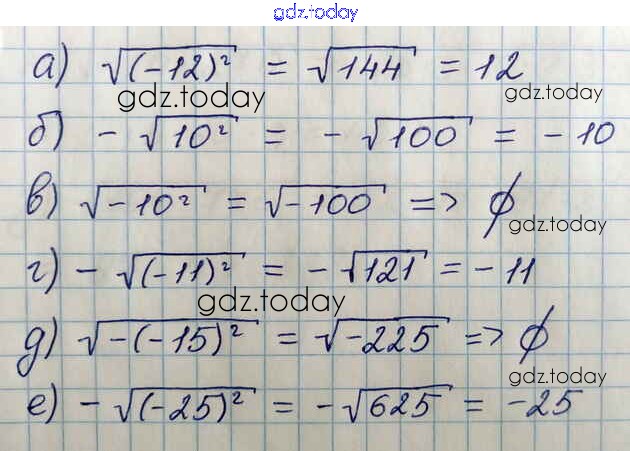 gdz.today
а) √(-12)² = √144 = 12
gdz.today
gdz.today
б) - √10² = - √100 = - 10
в) √-10² = √-100 => ∅
gdz.today
г) - √(-11)² = - √121 = - 11
gdz.today
д) √-(-15)² = √-225 => ∅
gdz.today
е) - √(-25)² = - √625 = -25